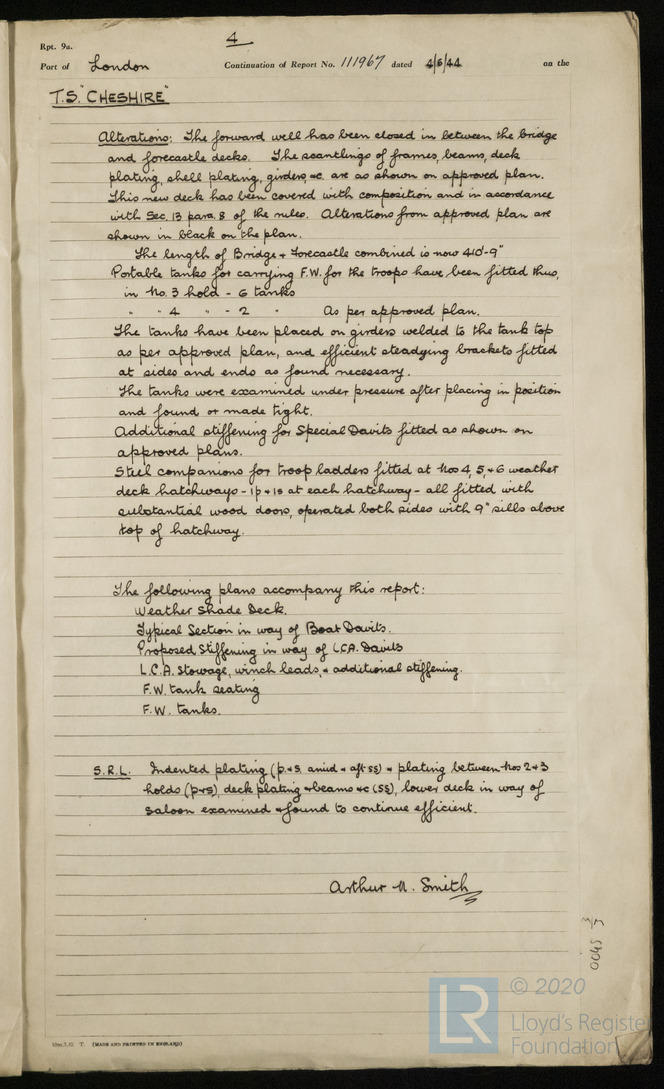 4
Rpt. 9a.
Port of London Continuation of Report No. 111967 dated 4/6/44 on the
T.S. "CHESHIRE"
Alterations: The forward well has been closed in between the bridge
and forecastle decks. The scantlings of frames, beams, deck
plating, shell plating, girders, &c. are as shown on approved plan.
This new deck has been covered with composition and in accordance
with Sec. 13 para. 8 of the rules. Alterations from approved plan are
shown in black on the plan.
The length of Bridge + Forecastle combined is now 410'-9"
Portable tanks for carrying F.W. for the troops have been fitted thus,
in No. 3 hold - 6 tanks
" " 4 " - 2 " As per approved plan.
The tanks have been placed on girders welded to the tank top
as per approved plan, and efficient steadying brackets fitted
at sides and ends as found necessary.
The tanks were examined under pressure after placing in position
and found or made tight.
Additional stiffening for Special Davits fitted as shown on
approved plans.
Steel companions for troop ladders fitted at Nos 4, 5, + 6 weather
deck hatchways - 1p + 1s at each hatchway - all fitted with
substantial wood doors, operated both sides with 9" sills above
top of hatchway.
The following plans accompany this report:
Weather Shade Deck.
Typical Section in way of Boat Davits.
Proposed Stiffening in way of LCA. Davits
L.C.A. Stowage, winch leads, + additional stiffening.
F.W. tank seating
F.W. tanks.
S.R.L. Indented plating (p.+s. amid + aft ss) + plating between Nos 2+3
holds (p+s), deck plating + beams &c (ss), lower deck in way of
saloon examined + found to continue efficient.
Arthur Smith
0045
LR
© 2020
Lloyd's Register
Foundation
T. (MADE AND PRINTED IN ENGLAND)